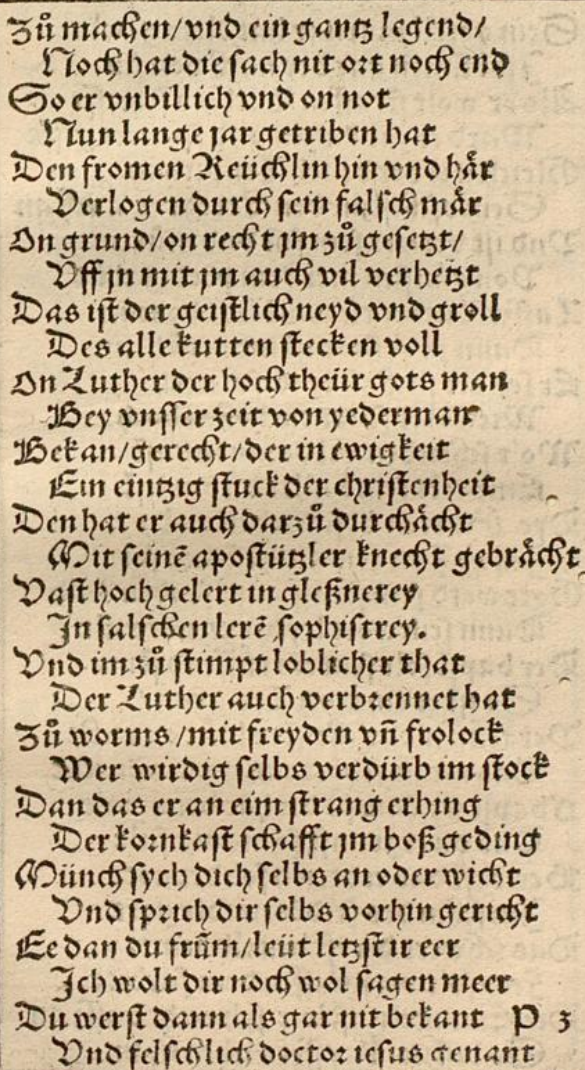 Zů machen/vnd ein gantz legend/
Noch hat die sach nit ort noch end
So er vnbillich vnd on not
Nun lange jar getriben hat
Den fromen Reüchlin hin vnd här
Verlogen durch sein falsch mär
On grund/on recht jm zů gesetzt/
Vff jn mit jm auch vil verhetzt
Das ist der geistlich neyd vnd groll
Des alle kutten stecken voll
On Luther der hoch theür gots man
Bey vnsser zeit von yederman
Bekan/gerecht/der in ewigkeit
Ein eintzig stuck der christenheit
Den hat er auch darzů durchächt
Mit seinē apostützler knecht gebrächt
Vast hoch gelert in gleßnerey
In falschen lerē sophistrey.
Vnd im zů stimpt loblicher that
Der Luther auch verbrennet hat
Zů worms/mit freyden vn̄ frolock
Wer wirdig selbs verdürb im stock
Dan das er an eim strang erhing
Der kornkast schafft jm boß geding
Münch sych dich selbs an oder wicht
Vnd sprich dir selbs vorhin gericht
Ee dan du frūm/leüt letzst ir eer
Ich wolt dir noch wol sagen meer
Du werst dann als gar nit bekant P 3
Vnd felschlich doctor iesus genant